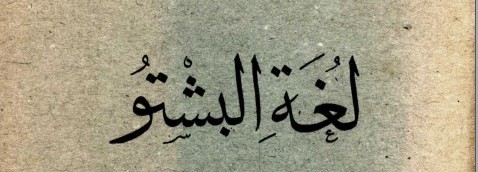 لُغَةِ البشْتوُ